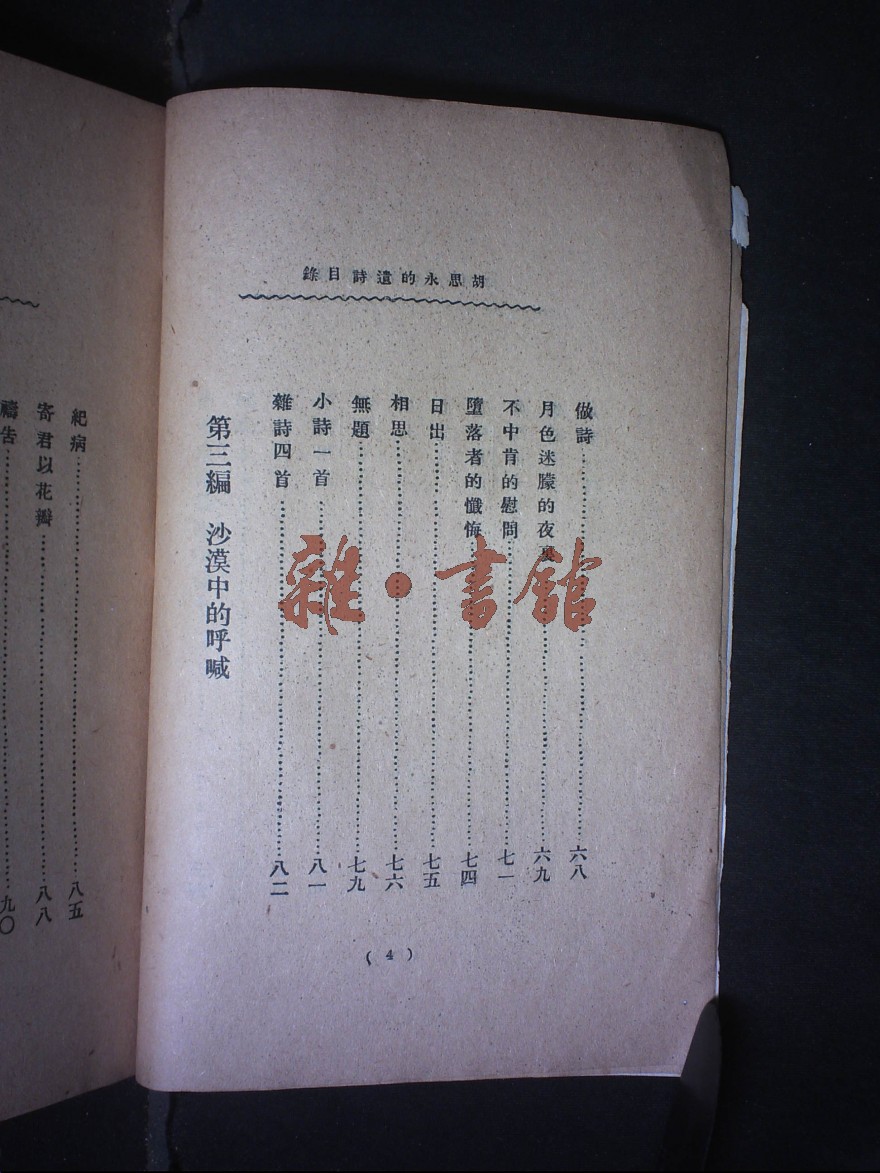 胡思永的遺詩目錄
做詩⋯⋯⋯⋯⋯⋯⋯⋯⋯⋯六八
月色迷朦的夜裏⋯⋯⋯⋯⋯⋯⋯⋯六九
不中肯的慰問⋯⋯⋯⋯⋯⋯⋯⋯七一
墮落者的懺悔⋯⋯⋯⋯⋯⋯⋯⋯七四
日出⋯⋯⋯⋯⋯⋯⋯⋯⋯⋯七五
相思⋯⋯⋯⋯⋯⋯⋯⋯⋯⋯七六
無題⋯⋯⋯⋯⋯⋯⋯⋯⋯⋯七九
小詩一首⋯⋯⋯⋯⋯⋯⋯⋯⋯八一
雜詩四首⋯⋯⋯⋯⋯⋯⋯⋯⋯八二
第三編 沙漠中的呼喊
(4)
紀病⋯⋯⋯⋯⋯⋯⋯⋯⋯⋯八五
寄君以花瓣⋯⋯⋯⋯⋯⋯⋯⋯八八
禱告⋯⋯⋯⋯⋯⋯⋯⋯⋯⋯九〇
雜·書館